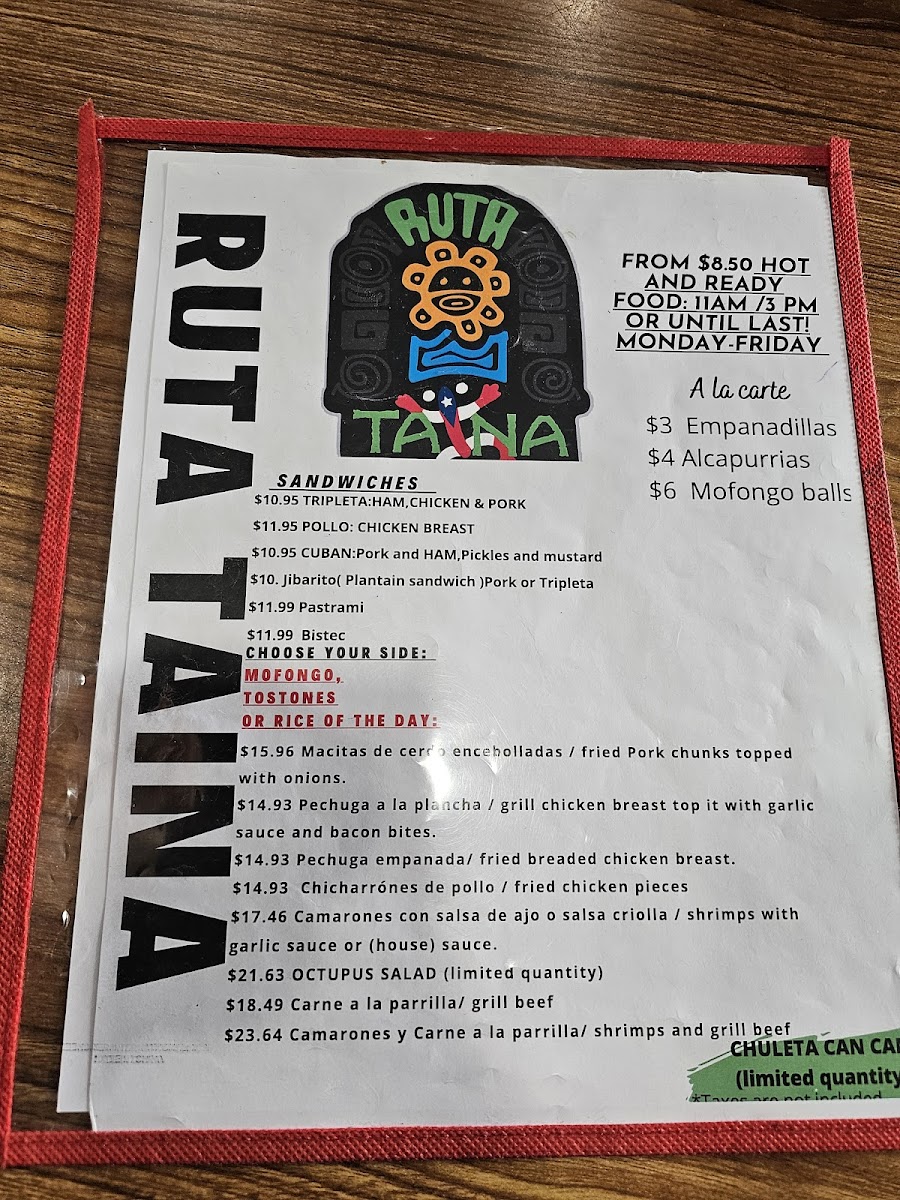 RUTA TAINA
RUTA
TAINA
FROM $8.50 HOT
AND READY
FOOD: 11AM /3 PM
OR UNTIL LAST!
MONDAY-FRIDAY
A la carte
$3 Empanadillas
$4 Alcapurrias
$6 Mofongo balls
SANDWICHES
$10.95 TRIPLETA:HAM,CHICKEN & PORK
$11.95 POLLO: CHICKEN BREAST
$10.95 CUBAN:Pork and HAM,Pickles and mustard
$10. Jibarito( Plantain sandwich )Pork or Tripleta
$11.99 Pastrami
$11.99 Bistec
CHOOSE YOUR SIDE:
MOFONGO,
TOSTONES
OR RICE OF THE DAY:
$15.96 Macitas de cerdo encebolladas / fried Pork chunks topped
with onions.
$14.93 Pechuga a la plancha / grill chicken breast top it with garlic
sauce and bacon bites.
$14.93 Pechuga empanada/ fried breaded chicken breast.
$14.93 Chicharrónes de pollo / fried chicken pieces
$17.46 Camarones con salsa de ajo o salsa criolla / shrimps with
garlic sauce or (house) sauce.
$21.63 OCTUPUS SALAD (limited quantity)
$18.49 Carne a la parrilla/ grill beef
$23.64 Camarones y Carne a la parrilla/ shrimps and grill beef
CHULETA CAN CA
(limited quantity
*Taxes are not included